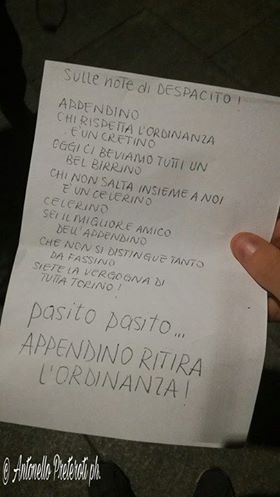 SULLE NOTE di DESPACITO!
APPENDINO
CHI RISPETTA L'ORDINANZA
E'UN CRETINO
OGGI CI BEVIAMO TUTTI UN
BEL BIRRINO
CHI NON SALTA INSIEME A NOI
E' UN CELERINO
CELERINO
SEI IL MIGLIORE AMICO
DELL'APPENDINO
CHE NON SI DISTINGUE TANTO
DA FASSINO
SIETE LA VERGOGNA DI
TUTTA TORINO!
pasito pasito...
APPENDINO RITIRA
L'ORDINANZA!
© Antonello Preteroti ph.